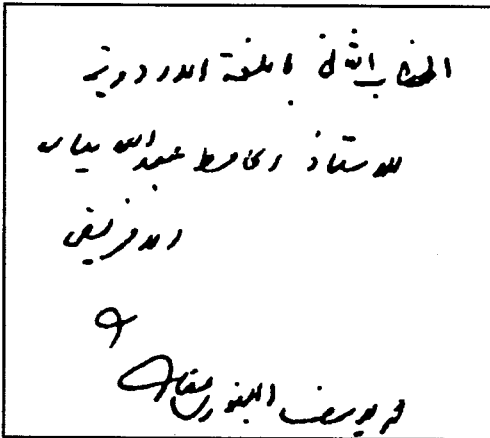 الخطاب الثاني باللغة الاردوية
للاستاذ الحافظ عبد الله بيات
الافريقي
محمد يوسف البنوري